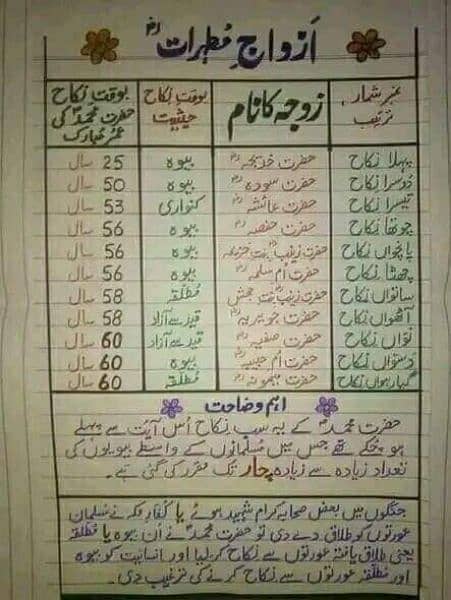 ازواجِ مطہرات رض
نمبر شمار، ترتیب	زوجہ کا نام	بوقتِ نکاح حیثیت	بوقتِ نکاح حضرت محمدؐ کی عمر مبارک
پہلا نکاح	حضرت خدیجہ رض	بیوہ	25 سال
دوسرا نکاح	حضرت سودہ رض	بیوہ	50 سال
تیسرا نکاح	حضرت عائشہ رض	کنواری	53 سال
چوتھا نکاح	حضرت حفصہ رض	بیوہ	56 سال
پانچواں نکاح	حضرت زینب بنت خزیمہ رض	بیوہ	56 سال
چھٹا نکاح	حضرت ام سلمہ رض	بیوہ	56 سال
ساتواں نکاح	حضرت زینب بنت جحش رض	مُطلّقہ	58 سال
آٹھواں نکاح	حضرت جویریہ رض	قید سے آزاد	58 سال
نواں نکاح	حضرت صفیہ رض	قید سے آزاد	60 سال
دسواں نکاح	حضرت ام حبیبہ رض	بیوہ	60 سال
گیارہواں نکاح	حضرت میمونہ رض	مُطلّقہ	60 سال
اہم وضاحت
حضرت محمدؐ کے یہ سب نکاح اُس آیت سے پہلے
ہو چُکے تھے جس میں مُسلمانوں کے واسطے بیویوں کی
تعداد زیادہ سے زیادہ چار تک مقرر کی گئی ہے۔
جنگوں میں بعض صحابہ کرام شہید ہوئے یا کُفارِ مکہ نے مُسلمان
عورتوں کو طلاق دے دی تو حضرت محمدؐ نے اُن بیوہ یا مُطلقہ
یعنی طلاق یافتہ عورتوں سے نکاح کر لیا اور انسانیت کو بیوہ
اور مُطلّقہ عورتوں سے نکاح کرنے کی ترغیب دی۔